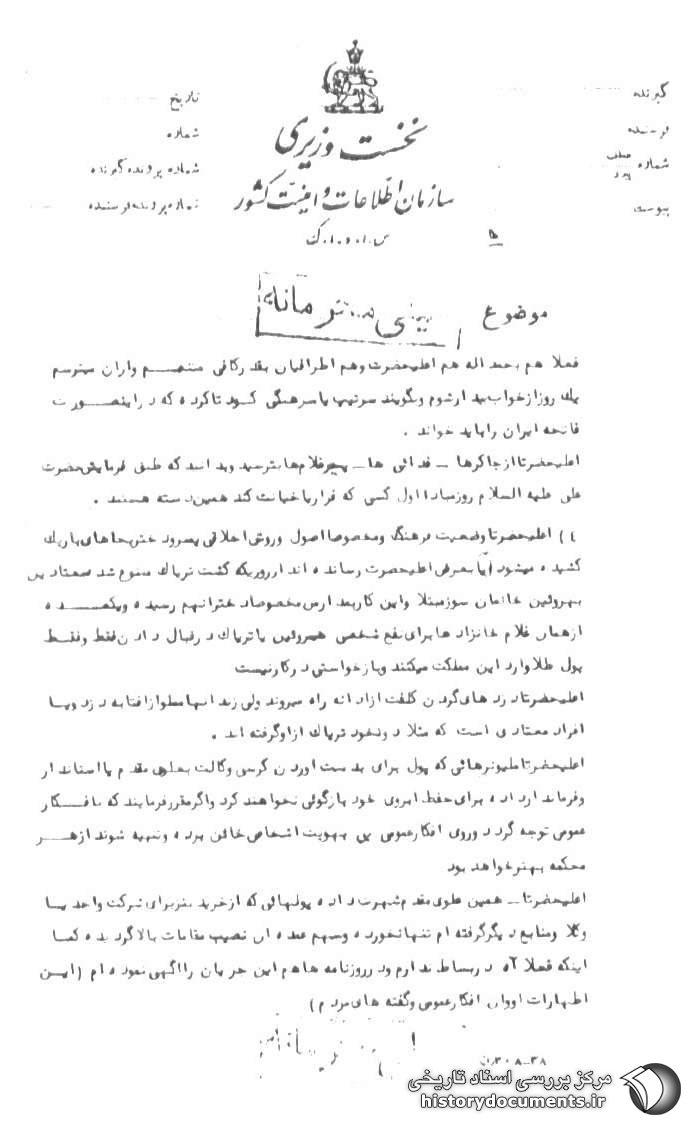 گیرنده
تاریخ
فرستنده
شماره
شماره عطف پیرو
شماره پرونده گیرنده
پیوست
شماره پرونده فرستنده
نخست وزیری
سازمان اطلاعات و امنیت کشور
س.ا.و.ا.ك
موضوع
فعلا هم بحمد اله هم اعلیحضرت وهم اطرافیان بقدر کافی متنعم واران میترسم
یك روز از خواب بیدار شوم وبگویند سرتیپ یا سرهنگی کودتا کرده که در اینصورت
فاتحه ایران را باید خواند .
اعلیحضرتا از چاکرها ـ فدائی ها ـ پیرغلامها بترسید وبدانید که طبق فرمایش حضرت
علی علیه السلام روز مبادا اول کسی که فرار یا خیانت کند همین دسته هستند .
٤) اعلیحضرتا وضعیت فرهنگ ومخصوصا اصول وروش اخلاقی پسر ودختر بجاهای باریك
کشیده میشود آیا بعرض اعلیحضرت رسانده اند از روزیکه کشت تریاك ممنوع شد معتادین
بهروئین خانمان سوز مبتلا واین کار بمدارس مخصوصا دخترانهم رسیده ویکعده
از همان غلام خانزادها برای نفع شخصی هیروئین یا تریاك در قبال دادن فقط وفقط
پول طلا وارد این مملکت میکنند وبازخواستی در کار نیست
اعلیحضرتا دزدهای گردن کلفت ازادانه راه میروند ولی زندانها مملو از افتابه دزد ویا
افراد معتادی است که مثلا دو نخود تریاك از او گرفته اند .
اعلیحضرتا ملیونرهائی که پول برای بدست اوردن کرسی وکالت بعلوی مقدم یا استاندار
وفرماندار داده برای حفظ ابروی خود بازگوئی نخواهند کرد واگر مقرر فرمایند که بافکار
عمومی توجه گردد وروی افکار عمومی پی بهویت اشخاص خائن برده وتنبیه شوند از هر
محکمه بهتر خواهد بود
اعلیحضرتا ـ همین علوی مقدم شهرت داده پولهائی که از خرید بنز برای شرکت واحد یا
وکلا ومنابع دیگر گرفته ام تنها نخورده وسهم عمده ان نصیب مقامات بالا گردیده کما
اینکه فعلا آه در بساط ندارم ودر روزنامه ها هم این جریان را اگهی نموده ام (این
اظهارات او وان افکار عمومی وگفته های مردم)
مرکز بررسی اسناد تاریخی
historydocuments.ir